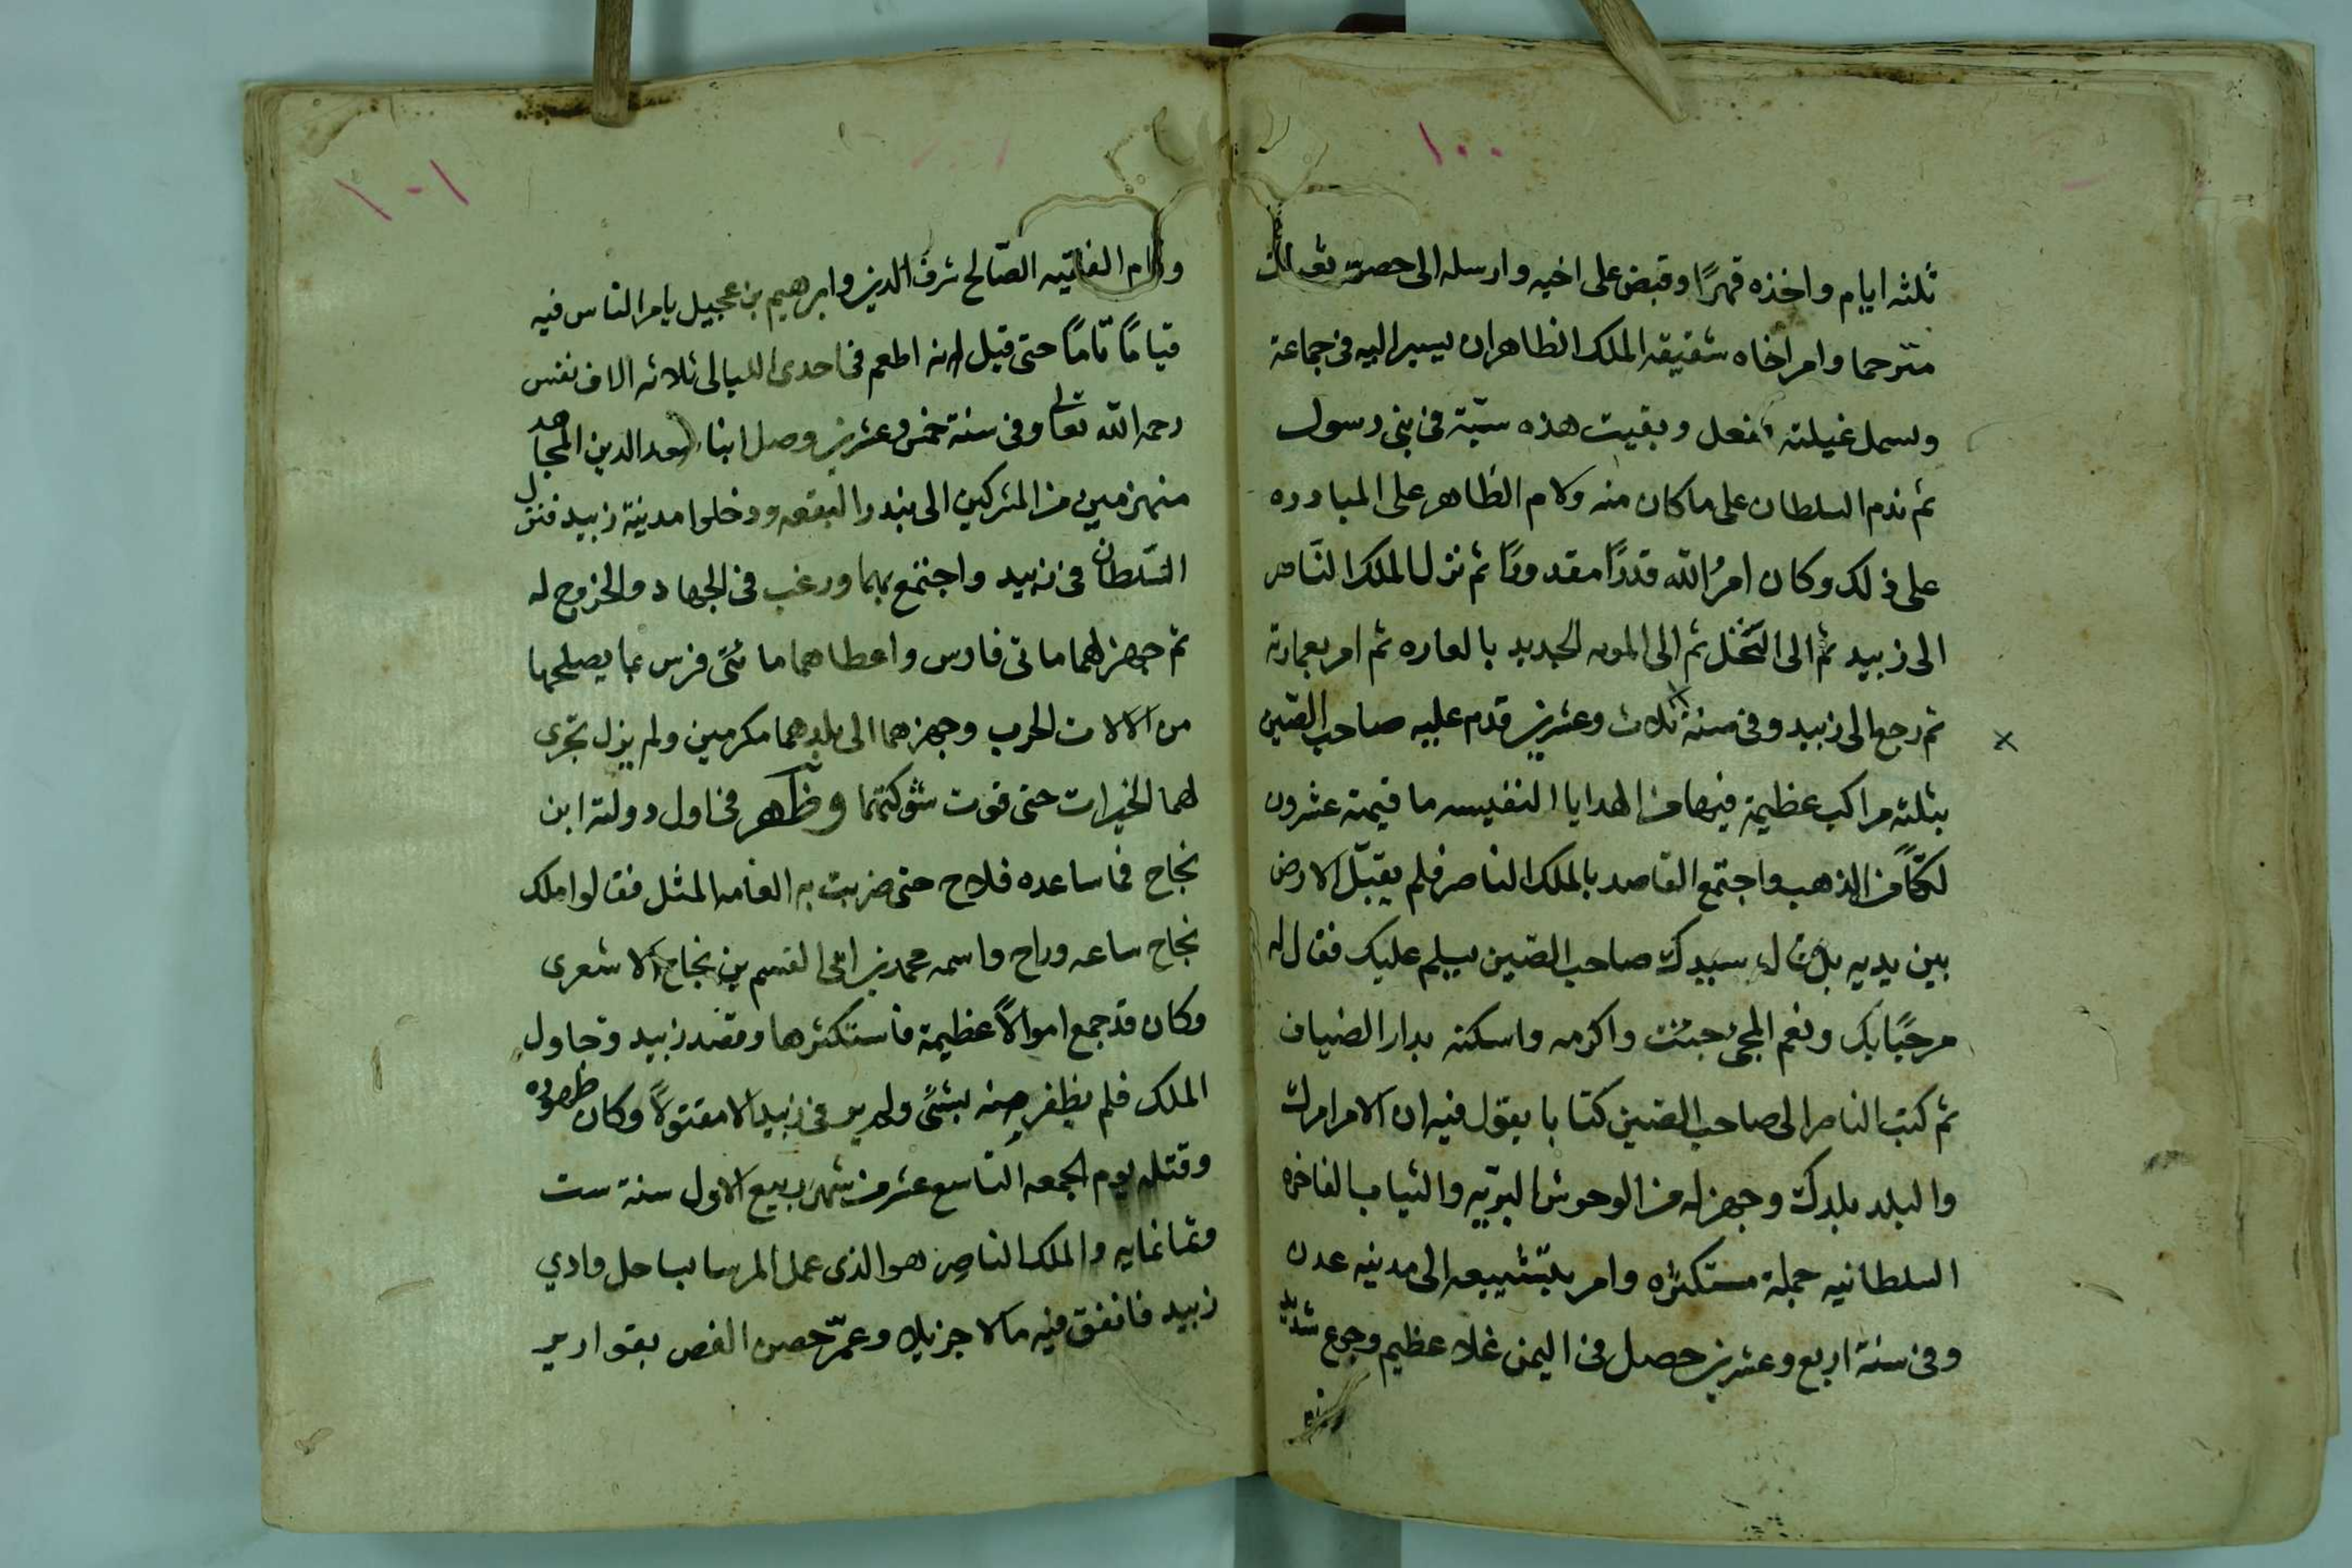 ١٠٠
ثلثه ايام واخذه قهرًا وقبض على اخيه وارسله الى حصن
مترحما وامر اخاه شقيقه الملك الظاهر ان يسير اليه فى جماعة
وسمل غيلته ففعل وبقيت هذه سبّة فى بنى رسول
ثم ندم السلطان على ما كان منه ولام الظاهر على المبادره
على ذلك وكان امرُ الله قدرًا مقدورًا ثم نزل الملك الناصر
الى زبيد ثم الى النخل ثم الى الجديد بالعاره ثم امر بعمارته
ثم رجع الى زبيد وفى سنة ثلاث وعشرين قدم عليه صاحب الصّين
بثلثه مراكب عظيمة فيها من الهدايا النفيسه ما قيمته عشرون
لكًّا من الذهب واجتمع القاصد بالملك الناصر فلم يقبّل الارض
بين يديه بل قال سيدك صاحب الصّين يسلم عليك فقال له
مرحبًا بك ونعم المجىُ جئت واكرمه واسكنه بدار الضياف
ثم كتب الناصر الى صاحب الصّين كتابا يقول فيه ان الامر امرك
والبلد بلدك وجهز له من الوحوش البرّيه والثياب الفاخره
السلطانيه جملة مستكثره وامر بتشييعه الى مدينه عدن
وفى سنة اربع وعشرين حصل فى اليمن غلاء عظيم وجوع شديد
١٠١
الفقيه الصّالح شرف الدين وابرهيم بن عجيل يامر الناس فيه
قيامًا تامًا حتى قيل انه اطعم فى احدى الليالى ثلاثه الاف نفس
رحمه الله تعالى وفى سنة خمس وعشرين وصل ابنا سعد الدين المجاهد
منهزمين من المشركين الى بندر البقعه ودخلوا مدينة زبيد فنزل
السّلطان فى زبيد واجتمع بهما ورغب فى الجهاد والخروج له
ثم جهز لهما ماتى فارس واعطاهما مائتى فرس بما يصلحها
من الالات الحرب وجهزهما الى بلدهما مكرمين ولم يزل تجرى
لهما الخيرات حتى قوت شوكتهما وظهر فى اول دولته ابن
نجاح فما ساعده فلاح حتى ضربت به العامه المثل فقالوا ملك
نجاح ساعه وراح واسمه محمد بن ابى القسم بن نجاح الاشعرى
وكان قد جمع اموالاً عظيمة فاستكثرها وقصد زبيد وحاول
الملك فلم يظفر منه بشئ ولم ير فى زبيد الا مقتولاً وكان ظهوره
وقتله يوم الجمعه التاسع عشر من شهر ربيع الاول سنة ست
وثمانمايه والملك الناصر هو الذى عمل المرسا بساحل وادي
زبيد فانفق فيه مالا جزيلا وعمّر حصن الفص بقوارير